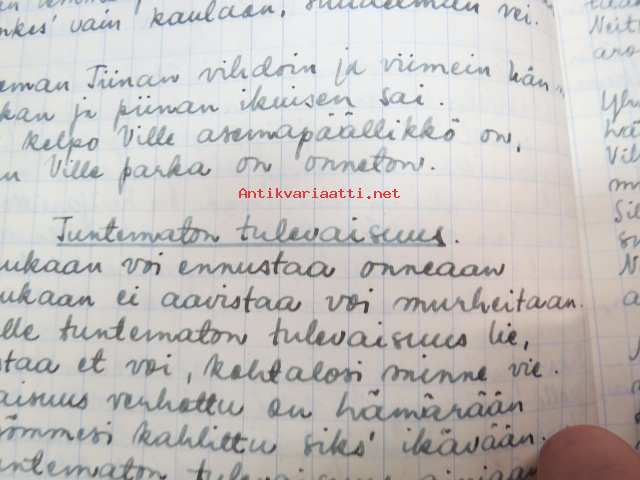 nkes' vain kaulaan, suudelman vei.
eman Tiinan vihdoin ja viimein hän
kan ja piinan ikuisen sai.
kelpo Ville asemapäällikkö on,
n Ville parka on onneton.
Antikvariaatti.net
Tuntematon tulevaisuus.
ukaan voi ennustaa onneaan
ukaan ei aavistaa voi murheitaan.
lle tuntematon tulevaisuus lie,
staa et voi, kohtalosi minne vie.
aisuus verhottu on hämärään
ömmesi kahlittu siks' ikävään.
untematon tulevaisuus
Neit
aro
Yks
hä
Vil
m
Sil
su
N
a